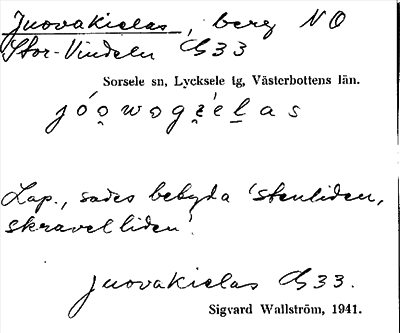 Juovakielas, berg NO
Stor-Vindeln G33
Sorsele sn, Lycksele lg, Västerbottens län.
jóo̯wogʒ́èl̲as
Lap., sades betyda 'stenliden,
skravelliden'.
Juovakielas G33.
Sigvard Wallström, 1941.